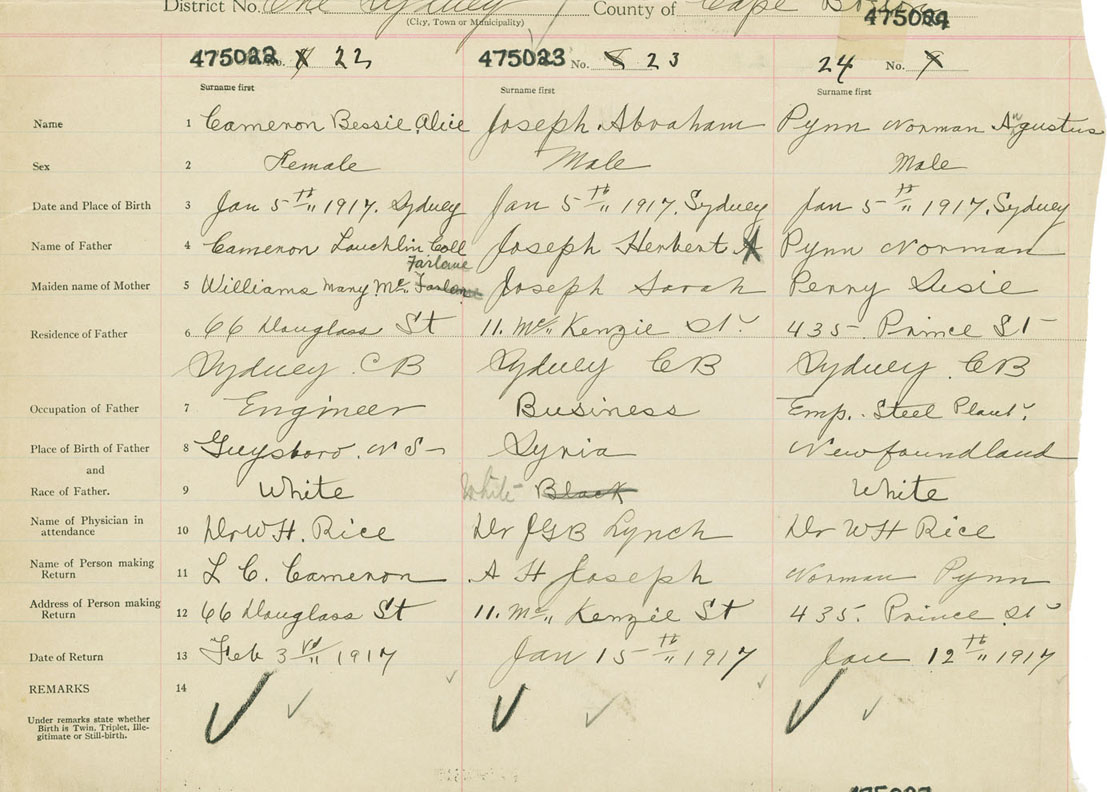 District No. One Sydney County of Cape
(City, Town or Municipality)
475024
475022 No. 8 22 475023 No. 8 23 24 No. 9
Surname first Surname first Surname first
Name 1 Cameron Bessie Alice Joseph Abraham Pynn Norman Agustus
Sex 2 Female Male Male
Date and Place of Birth 3 Jan 5th 1917. Sydney Jan 5th 1917. Sydney Jan 5th 1917. Sydney
Name of Father 4 Cameron Lauchlin Coll Joseph Herbert A Pynn Norman
Farlane
Maiden name of Mother 5 Williams Mary Mc Farlane Joseph Sarah Penny Susie
Residence of Father 6 66 Douglass St 11. Mc Kenzie St. 435 Prince St
Sydney. C B Sydney C B Sydney. C B
Occupation of Father 7 Engineer Business Emp. Steel Plant.
Place of Birth of Father 8 Guysboro. N S Syria Newfoundland
and
Race of Father. 9 White White Black White
Name of Physician in
attendance 10 Dr W H. Rice Dr J G B Lynch Dr W H Rice
Name of Person making
Return 11 L C. Cameron A H Joseph Norman Pynn
Address of Person making
Return 12 66 Douglass St 11. Mc Kenzie St 435. Prince St
Date of Return 13 Feb 3rd 1917 Jan 15th 1917 Jan 12th 1917
REMARKS 14
Under remarks state whether
Birth is Twin, Triplet, Ille-
gitimate or Still-birth.